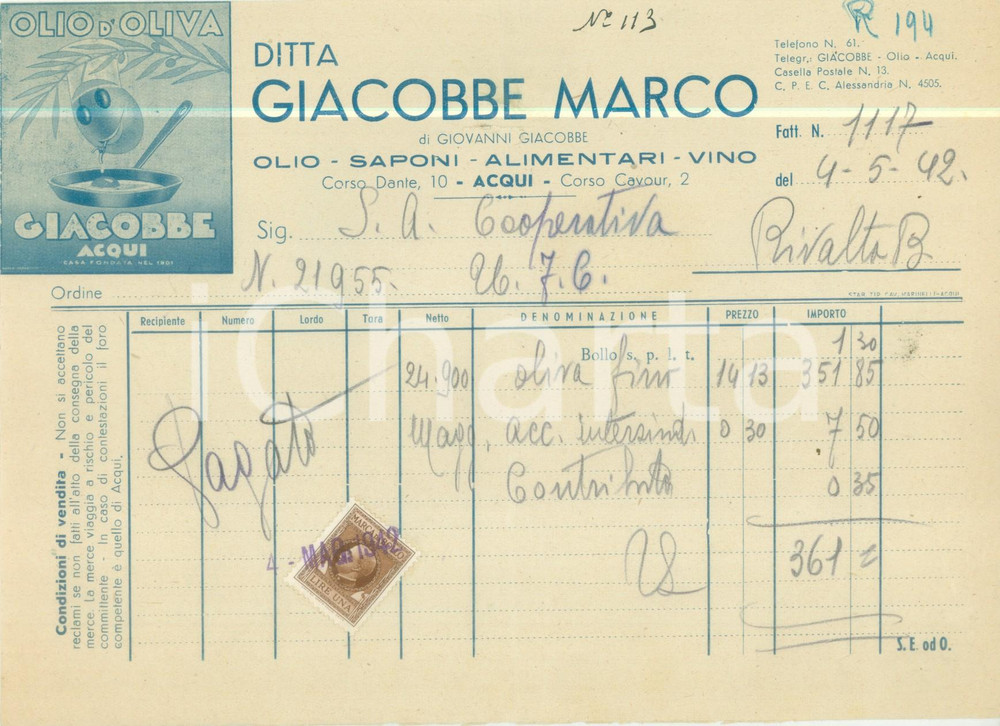 OLIO D'OLIVA
GIACOBBE
ACQUI
CASA FONDATA NEL 1901
N° 113
R 194
DITTA
GIACOBBE MARCO
di GIOVANNI GIACOBBE
OLIO - SAPONI - ALIMENTARI - VINO
Corso Dante, 10 - ACQUI - Corso Cavour, 2
Telefono N. 61.
Telegr.: GIACOBBE - Olio - Acqui.
Casella Postale N. 13.
C. P. E. C. Alessandria N. 4505.
Fatt. N. 1117
del 4-5-42.
Sig. S. A. Cooperativa
Rivalta B
N. 21955.
Ordine
Recipiente Numero Lordo Tara Netto DENOMINAZIONE PREZZO IMPORTO
Bollo s. p. l. t. 1 30
24.900 oliva fino 14 13 351 85
Magg. acc. intersind 0 30 7 50
Contributo 0 35
361
Pagato
MARCA
LIRE UNA
4 - MAG. 1942
S. E. od O.
Condizioni di vendita - Non si accettano
reclami se non fatti all'atto della consegna della
merce. La merce viaggia a rischio e pericolo del
committente - In caso di contestazioni il foro
competente è quello di Acqui.
iCharta